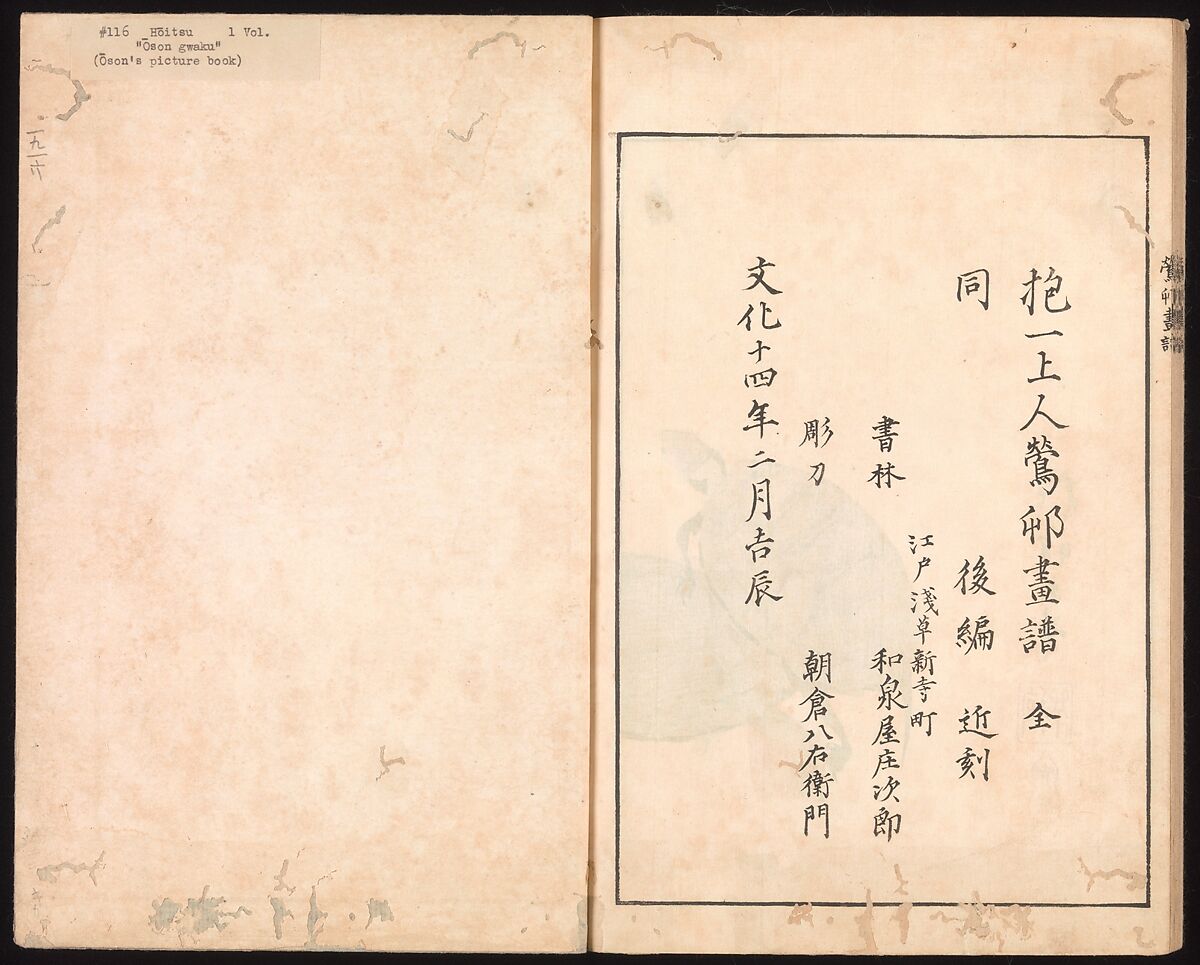 #116 Hōitsu 1 Vol.
"Ōson gwaku"
(Ōson's picture book)
抱一上人鶯邨畫譜 全
同 後編 近刻
江戸淺草新寺町
書林 和泉屋庄次郎
彫刀 朝倉八右衛門
文化十四年二月吉辰
鶯邨畫譜